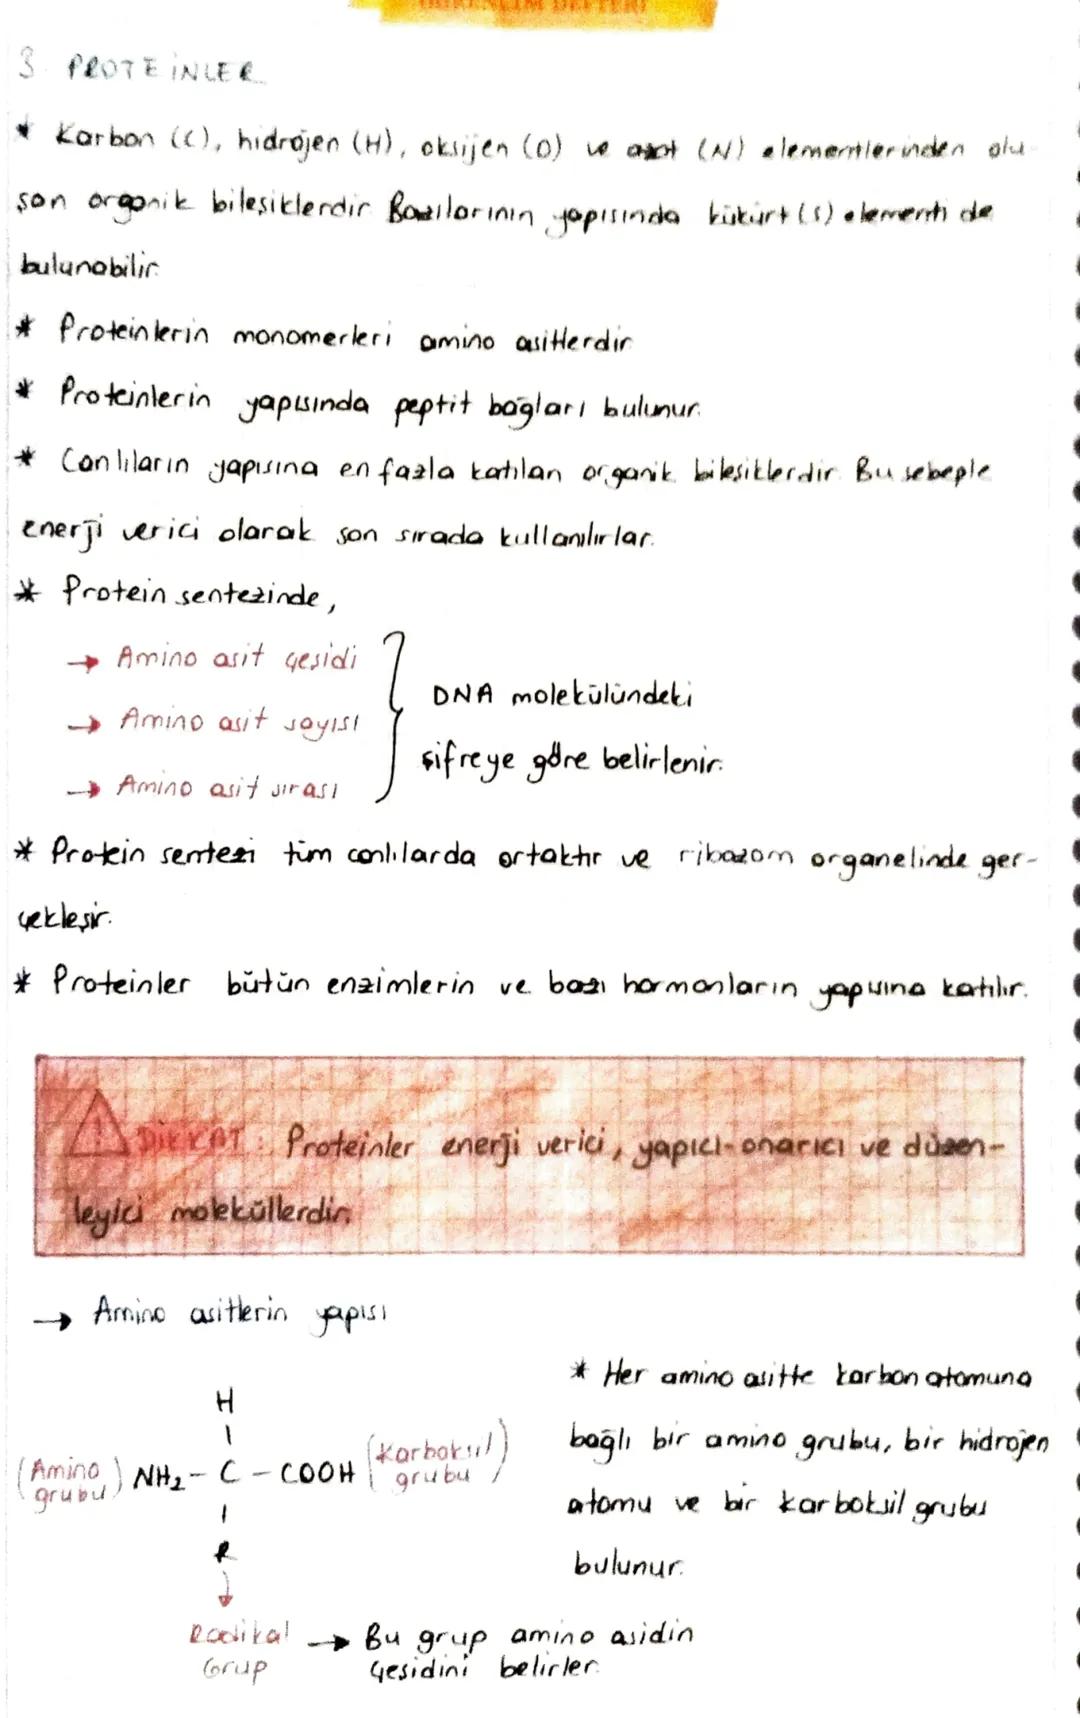 ÖĞRENCİM DEFTERİ
3. PROTEİNLER
* Karbon (C), hidrojen (H), oksijen (O) ve azot (N) elementlerinden olu-
şan organik bileşiklerdir. Bazılarının yapısında kükürt (S) elementi de
bulunabilir.
* Proteinlerin monomerleri amino asitlerdir.
* Proteinlerin yapısında peptit bağları bulunur.
* Canlıların yapısına en fazla katılan organik bileşiklerdir. Bu sebeple
enerji verici olarak son sırada kullanılırlar.
* Protein sentezinde,
→ Amino asit çeşidi
→ Amino asit sayısı
→ Amino asit sırası
DNA molekülündeki
şifreye göre belirlenir.
* Protein sentezi tüm canlılarda ortaktır ve ribozom organelinde ger-
çekleşir.
* Proteinler bütün enzimlerin ve bazı hormonların yapısına katılır.
! DİKKAT: Proteinler enerji verici, yapıcı-onarıcı ve düzen-
leyici moleküllerdir.
→ Amino asitlerin yapısı
H
(Amino grubu) NH₂ - C - COOH (Karboksil grubu)
R
↓
Radikal Grup → Bu grup amino asidin
çeşidini belirler.
* Her amino asitte karbon atomuna
bağlı bir amino grubu, bir hidrojen
atomu ve bir karboksil grubu
bulunur.